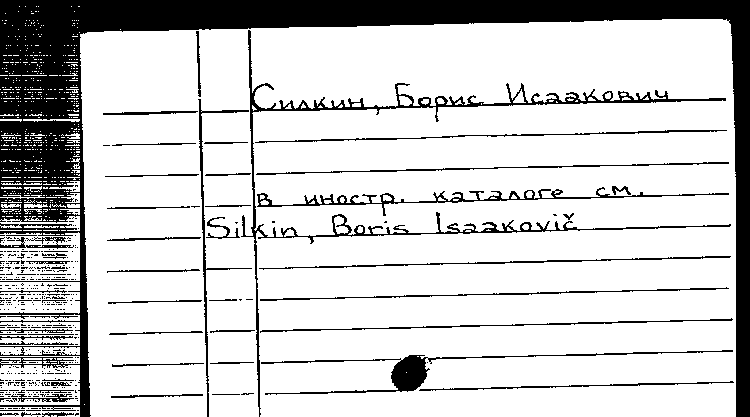 Силкин, Борис Исаакович
в иностр. каталоге см.
Silkin, Boris Isaakovič